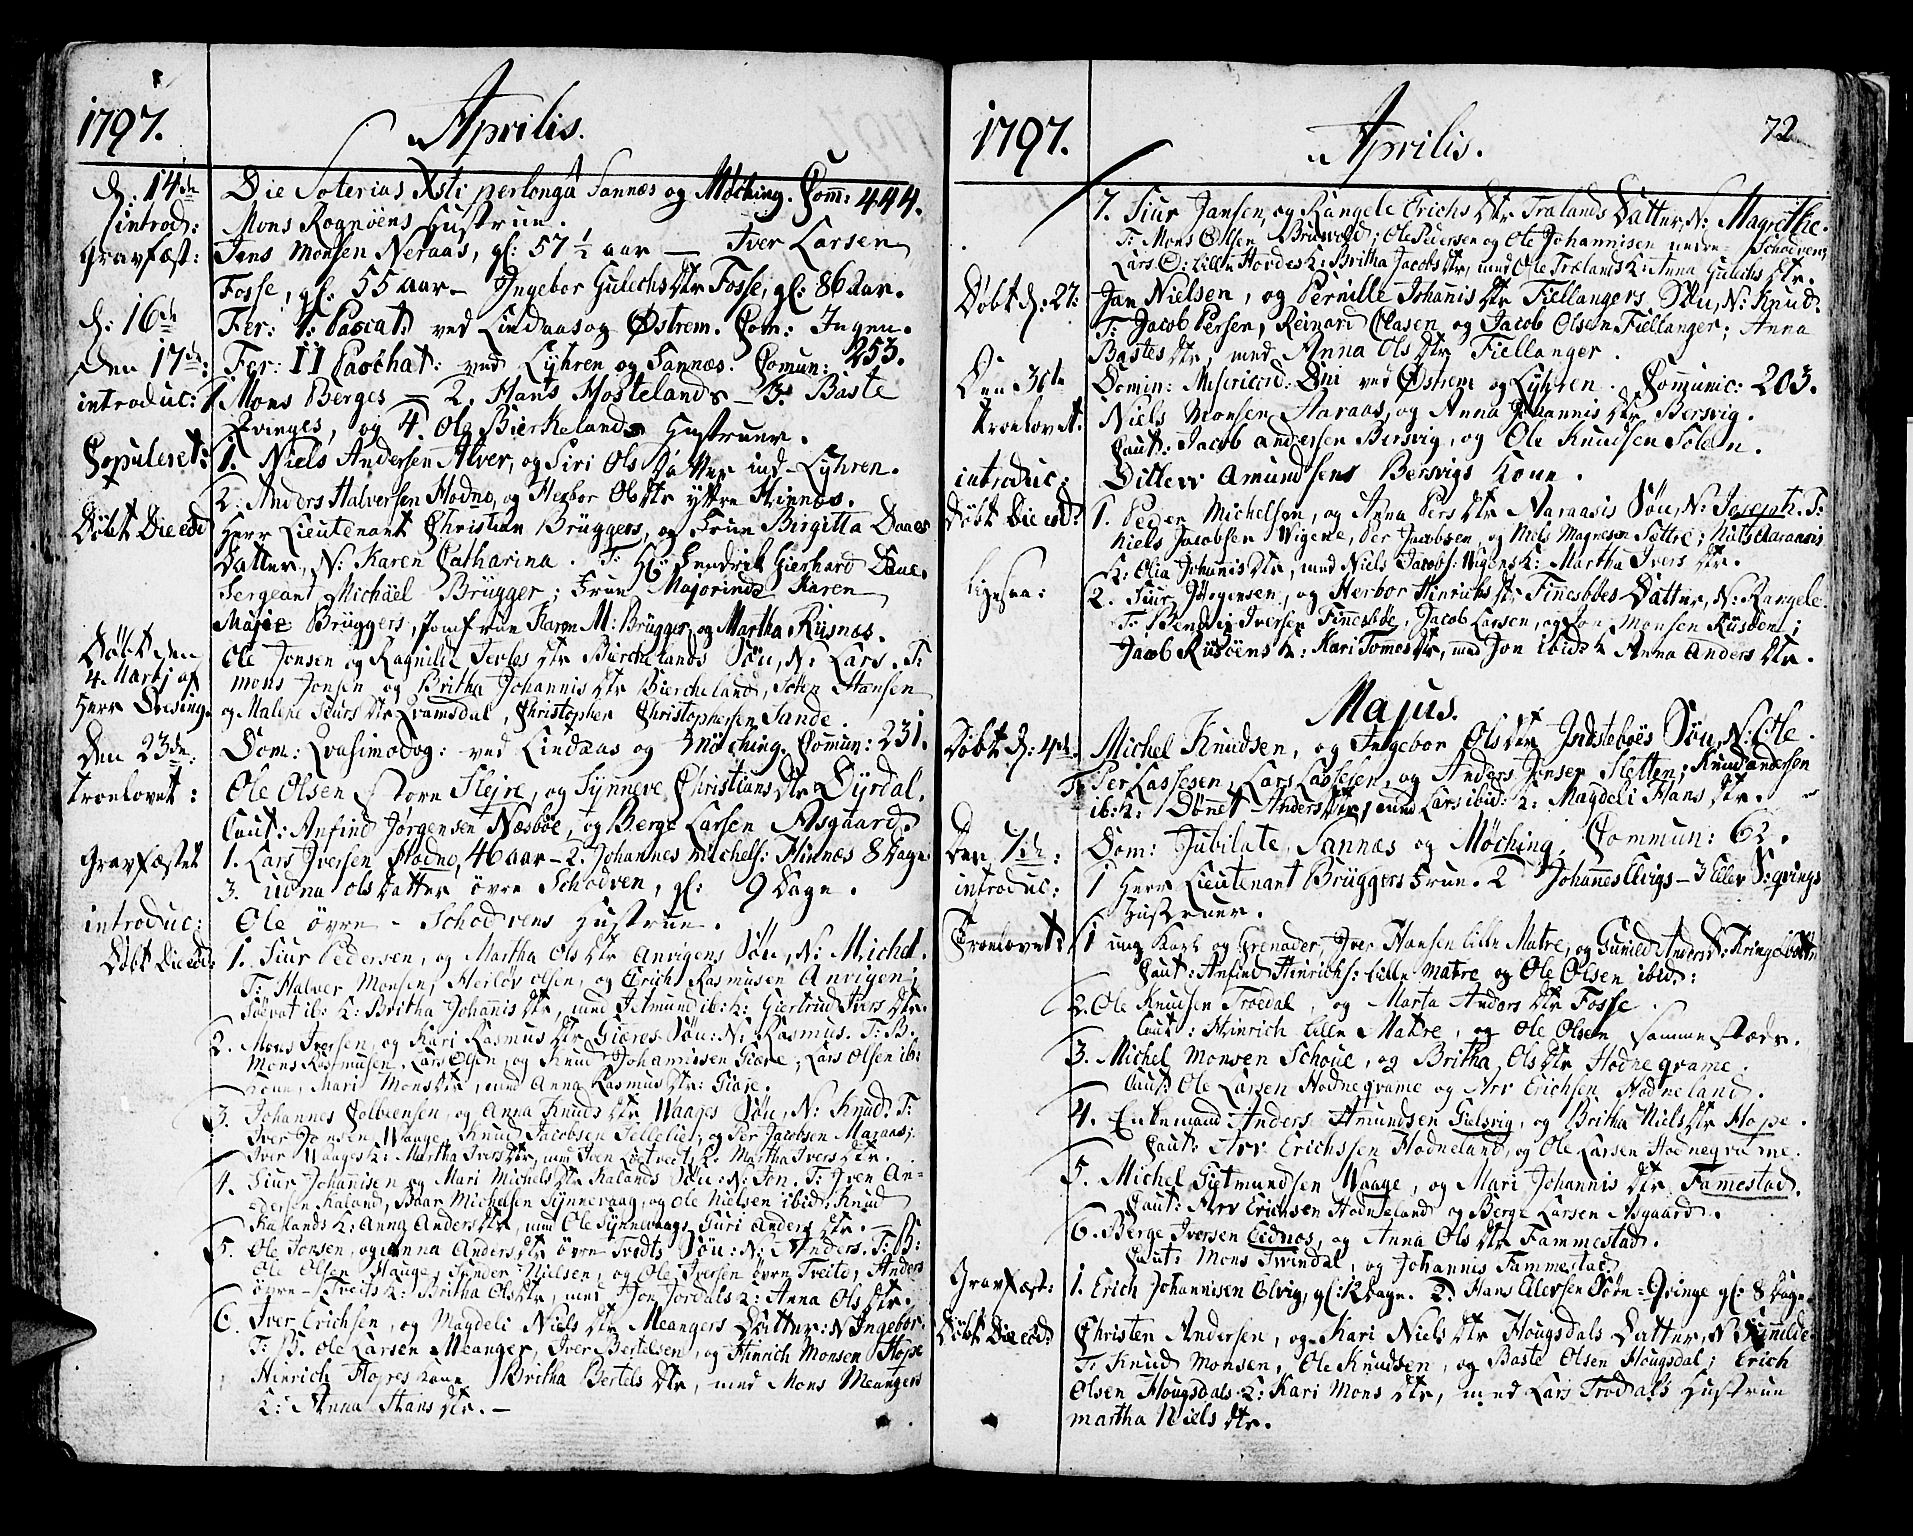 1797. Aprilis.
d: 14de Die Soterias Xsti perlongâ Sannæs og Møching. Com̄: 444.
introd: Mons Rognøens Hustrue.
Gravfæst: Jens Monsen Neraas, gl: 57 1/2 aar — Iver Larsen
Fosse, gl. 55 aar — Ingebor Gulechs dtr Fosse, gl: 86 aar.
d: 16de Fer: I: Pascat: ved Lindaas og Østrem. Com: Ingen.
Den 17de: Fer: II Paschat: ved Lyhren og Sannæs. Comun: 253.
introduc: 1 Mons Berges — 2. Hans Hostelands — 3. Baste
Qvinges, og 4. Ole Bierkelands Hustruer.
Copuleret: 1. Niels Andersen Alver, og Siri Ols Datter ind Lyhren.
2. Anders Halversen Hodno, og Herbor Ols dtr yttre Hinnæs.
Døbt Die eod Herr Lieutenant Christian Brüggers, og Frue Birgitta Daaes
Datter, N: Karen Catharina. T: Hr: Hendrik Gierhard Daae.
Sergeant Michäel Brügger; Frue Majorinde Karen
Majie Brüggers, Jomfrue Karen M: Brügger, og Martha Risnæs.
Døbt den Ole Jonsen og Ragnilde Jerlos dtr Bierchelands Søn, N: Lars. T:
4 Martj af Mons Jonsen og Britha Johannis dtr Biercheland, Søren Hansen
Herr Dresing. og Malene Siurs dtr Qvamsdal, Christopher Christophersen Sande.
Den 23de: Dom: Qvasimodog: ved Lindaas og Møching. Comun: 231.
Troelovet: Ole Olsen Store Hejre, og Synneve Christians dtr Dyrdal.
Caut: Anfind Jørgensen Næsbøe, og Berge Larsen Asgaard.
Gravfæstet 1. Lars Iversen Hodno, 46 aar — 2. Johannes Michels: Hinnæs 8 Dage
3. Udna Ols datter øvre Schodven, gl: 9 Dage.
introduc: Ole øvre - Schodvens Hustrue.
Døbt Die eod: 1. Siur Pedersen, og Martha Ols dtr Anvigens Søn, N: Michel.
T: Halver Monsen, Herløv Olsen, og Erich Rasmusen Anvigen;
Siovat ib: K: Britha Johannis dtr, med Jetmund ib: K: Giertrud Ivers dtr.
2. Mons Iversen, og Kari Rasmus dtr Giæres Søn: N: Rasmus. T: B.
Mons Rasmusen, Lars Olsen, og Knud Johannesen Giære; Lars Olsen ib:
Kone, Mari Mons dtr, med Anna Rasmus dtr: Giære.
3. Johannes Colbiensen, og Anna Knuds dtr Waages Søn, N: Knud. T:
Iver Jonsen Waage, Knud Jacobsen Tellelie, og Per Jacobsen Maraas;
Iver Waages K: Martha Ivers dtr, med Iven K: Martha Ivers dtr.
4. Siur Johannisen og Mari Michels dtr Kalands Søn: N: Jon. T: Iven An-
dersen Kaland, Baar Michelsen Synnevaag, og Ole Nielsen ibid: Knud
Kalands K: Anna Anders dtr, med Ole Synnevaags Guri Anders dtr. —
5. Ole Jonsen, og Anna Anders dtr øvre Tvedts Søn: N: Anders. T: B:
Ole Olsen Hauge, Sunder Nielsen, og Ole Iversen øvre Tveite, Anders
øvre Tvedts K: Britha Ols dtr, med Jon Jordals K: Anna Ols dtr.
6. Iver Erichsen, og Magdeli Niels dtr Meangers Datter: N: Ingebor.
T: B. Ole Larsen Meanger, Iver Bertelsen, og Hinrich Monsen Hope
Hinrich Hopes Kone Britha Bertels dtr, med Mons Meangers
K: Anna Hans dtr. —
1797. Aprilis. 72
7. Siur Jansen, og Rangele Erichs dtr Trælands Datter, N: Magrethe.
T: Mons Olsen Bruvold; Ole Pedersen og Ole Johannisen nedre Schodven;
Lars O: Lille Hordes K: Britha Jacobs dtr, med Ole Trælands K: Anna Gulechs dtr.
Døbt d: 27: Jan Nielsen, og Pernille Johannis dtr Fiellangers Søn, N: Knud.
T: Jacob Persen, Reinard Olasen og Jacob Olsen Fiellanger; Anna
Bastes dtr, med Anna Ols dtr Fiellanger.
Den 30te Domin: Misericord: Dni ved Østrem og Lyhren. Comunic: 203.
Troelovet: Niels Monsen Haraas, og Anna Johannis dtr Bersvig.
Caut: Jacob Andersen Bersvig, og Ole Knudsen Solem.
introduc: Ditlew Amundsens Bersvigs Kone.
Døbt Die eod: 1. Peder Michelsen, og Anna Pers dtr Maraasis Søn, N: Joseph. T:
Niels Jacobsen Wigene, Per Jacobsen, og Niels Magnesen Sættre; Niels Maraasis
K: Olia Johannis dtr, med Niels Jacobs: Wigens K: Martha Ivers dtr.
ligesaa: 2. Siur Jørgensen, og Herbor Hinrichs dtr Finnesbøes Datter, N: Rangele.
T: Bendix Iversen Finnesbøe, Jacob Larsen, og Jon Monsen Risøen;
Jacob Risøens K: Kari Tomes dtr, med Jon ibid: K Anna Anders dtr.
Majus.
Døbt d: 4de. Michel Knudsen, og Ingebor Ols dtr Indstebøes Søn, N: Ole.
T. Per Lassesen, Lars Lassesen, og Anders Jensen Sletten; Knud Andersen
ib: K: Dønnet Anders dtr, med Lars ibid: K: Magdeli Hans dtr.
Den 7de: Dom: Jubilate, Sannæs og Møching. Commun: 62.
introduc: 1 Herr Lieutenant Brüggers Frue. 2 Johannes Elvigs — 3 Eilev S: qvings
Hustruer.
Troelovet: 1 ung Karl og Grenader, Iver Hansen lille Matre, og Gunild Anders dtr: Kringelbotn
Caut: Anfind Hinrichs: lille Matre og Ole Olsen ibid:
2. Ole Knudsen Troedal, og Marta Anders dtr Fosse.
Caut: Hinrich lille Matre, og Ole Olsen sammestæds.
3. Michel Monsen Schoue, og Britha Ols dtr Hodneqvame.
Caut: Ole Larsen Hodneqvame og Arv Erichsen Hodneland.
4. Enkemand Anders Amundsen Gielsvig, og Britha Niels dtr Hope.
Caut: Arv Erichssen Hodneland, og Ole Larsen Hodneqvame.
5. Michel Gietmundsen Waage, og Mari Johannis dtr Famestad.
Caut: Arv Erichsen Hodneland og Berge Larsen Asgaard.
6. Berge Iversen Eidnes, og Anna Ols dtr Fammestad.
Caut: Mons Tvindal, og Johannis Fammestad
Gravfæst: 1. Erich Johannisen Elvig, gl: 12 Dage. 2. Hans Eilevsen Søtn = Qvinge gl: 8 Dage.
Døbt Die eod: Christen Andersen, og Kari Niels dtr Hougsdals Datter, N: Gunilde
T: Knud Monsen, Ole Knudsen, og Baste Olsen Hougsdal; Erich
Olsen Hougsdals K: Kari Mons dtr, med Lars Trodals Hustrue
Martha Niels dtr.